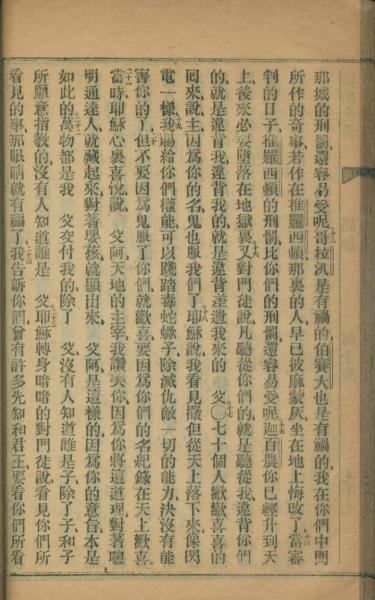 那城的刑罰還容易受呢哥拉汛是有禍的伯賽大也是有禍的我在你們中間
所作的奇事若作在推羅西頓那裏的人早已披麻蒙灰坐在地上悔改了當審
判的日子推羅西頓的刑罰比你們的刑罰還容易受呢迦百農你已經升到天
上後來必要墮落在地獄裏又對門徒說凡聽從你們的就是聽從我違背你們
的就是違背我違背我的就是違背差遣我來的 父〇七十個人歡歡喜喜的
回來說主因爲你的名鬼也服我們了耶穌說我看見撒但從天上落下來像閃
電一樣我賜給你們權能可以踐踏毒蛇蠍子除滅仇敵一切的能力決沒有能
害你的了但不要因爲鬼服了你們就歡喜要因爲你們的名紀錄在天上歡喜
當時耶穌心裏喜悅說 父阿天地的主宰我讚美你因爲你將這道理對著聰
明通達人就藏起來對著嬰孩就顯出來 父阿是這樣的因爲你的意旨本是
如此的萬物都是我 父交付我的除了 父沒有人知道誰是子除了子和子
所願意指教的沒有人知道誰是 父耶穌轉身暗暗的對門徒說看見你們所
看見的事那眼睛就有福了我告訴你們曾有許多先知和君王要看你們所看